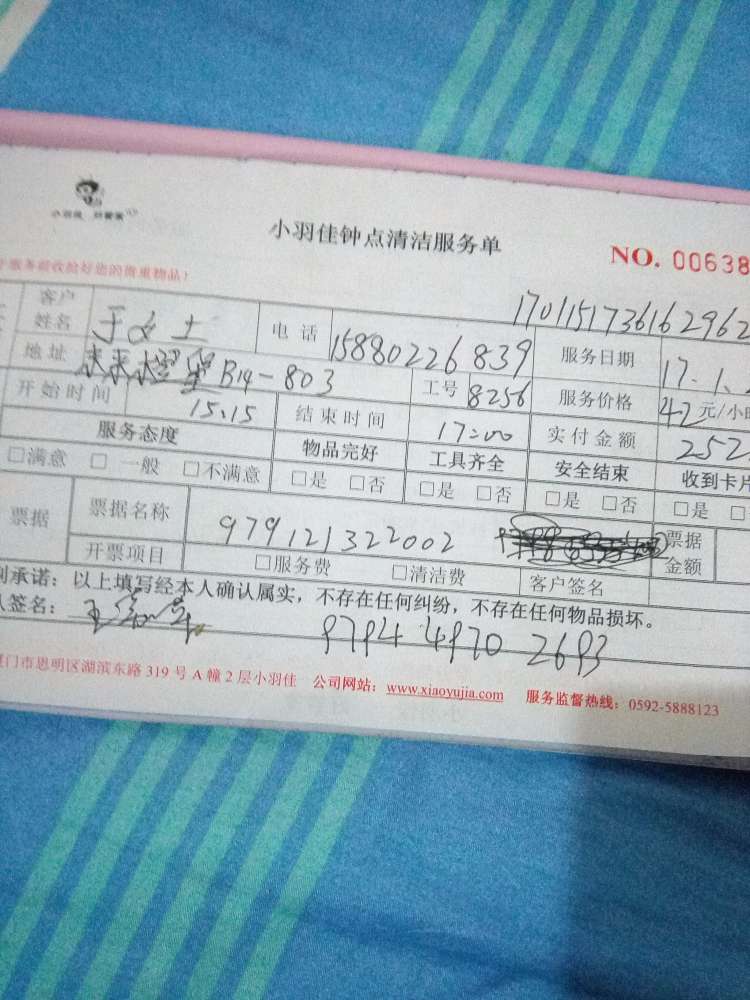 小羽佳钟点清洁服务单
NO. 00638
服务前收拾好您的贵重物品！
1701151736162962
客户姓名 于女士 电 话 15880226839 服务日期 17.1.
地址 B14-803 工号 8256 服务价格 42 元/小时
开始时间 15.15 结束时间 17:00 实付金额 252
服务态度 物品完好 工具齐全 安全结束 收到卡片
□满意 □ 一般 □不满意 □是 □否 □是 □否 □是 □否 □是 □
票据 票据名称 979121322002 票据金额
开票项目 □服务费 □清洁费 客户签名
承诺：以上填写经本人确认属实，不存在任何纠纷，不存在任何物品损坏。
签名： 9794 4970 2693
门市思明区湖滨东路 319 号 A 幢 2 层小羽佳 公司网站：www.xiaoyujia.com 服务监督热线：0592-5888123